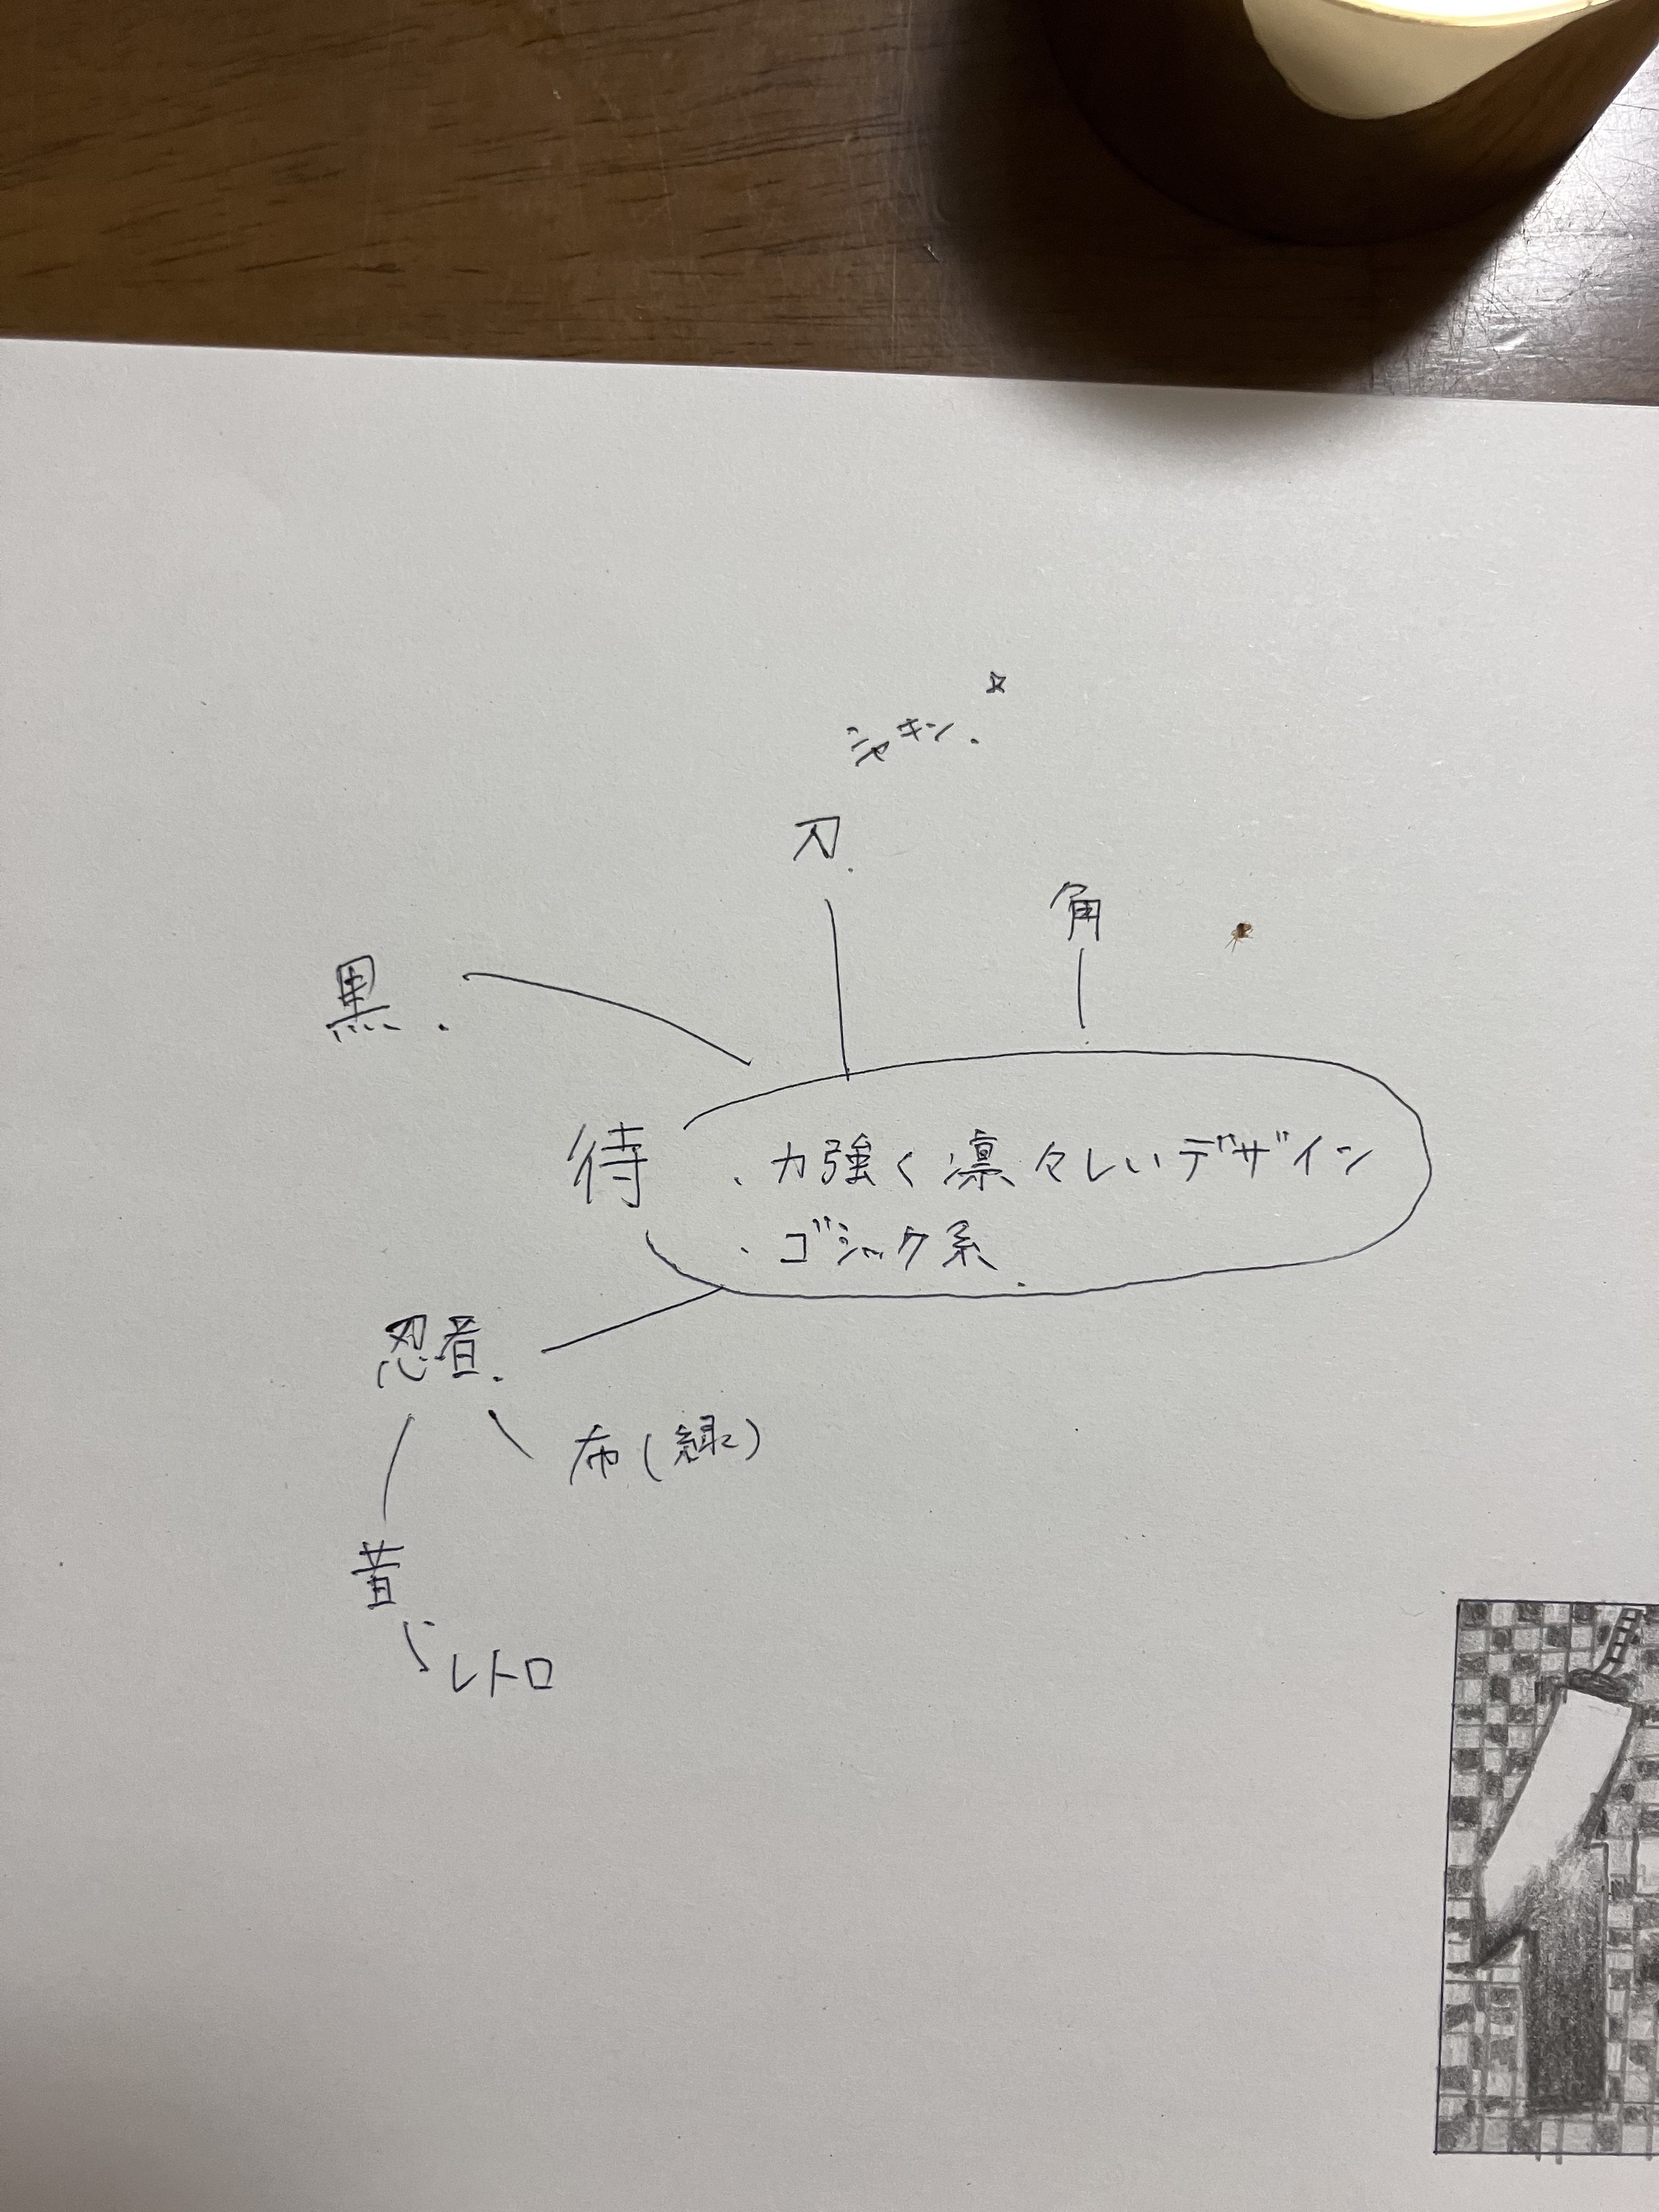 シャキン.☆
刀.
角
黒.
待
・力強く凛々しいデザイン
・ゴシック系.
忍者.
布(緑)
昔
レトロ